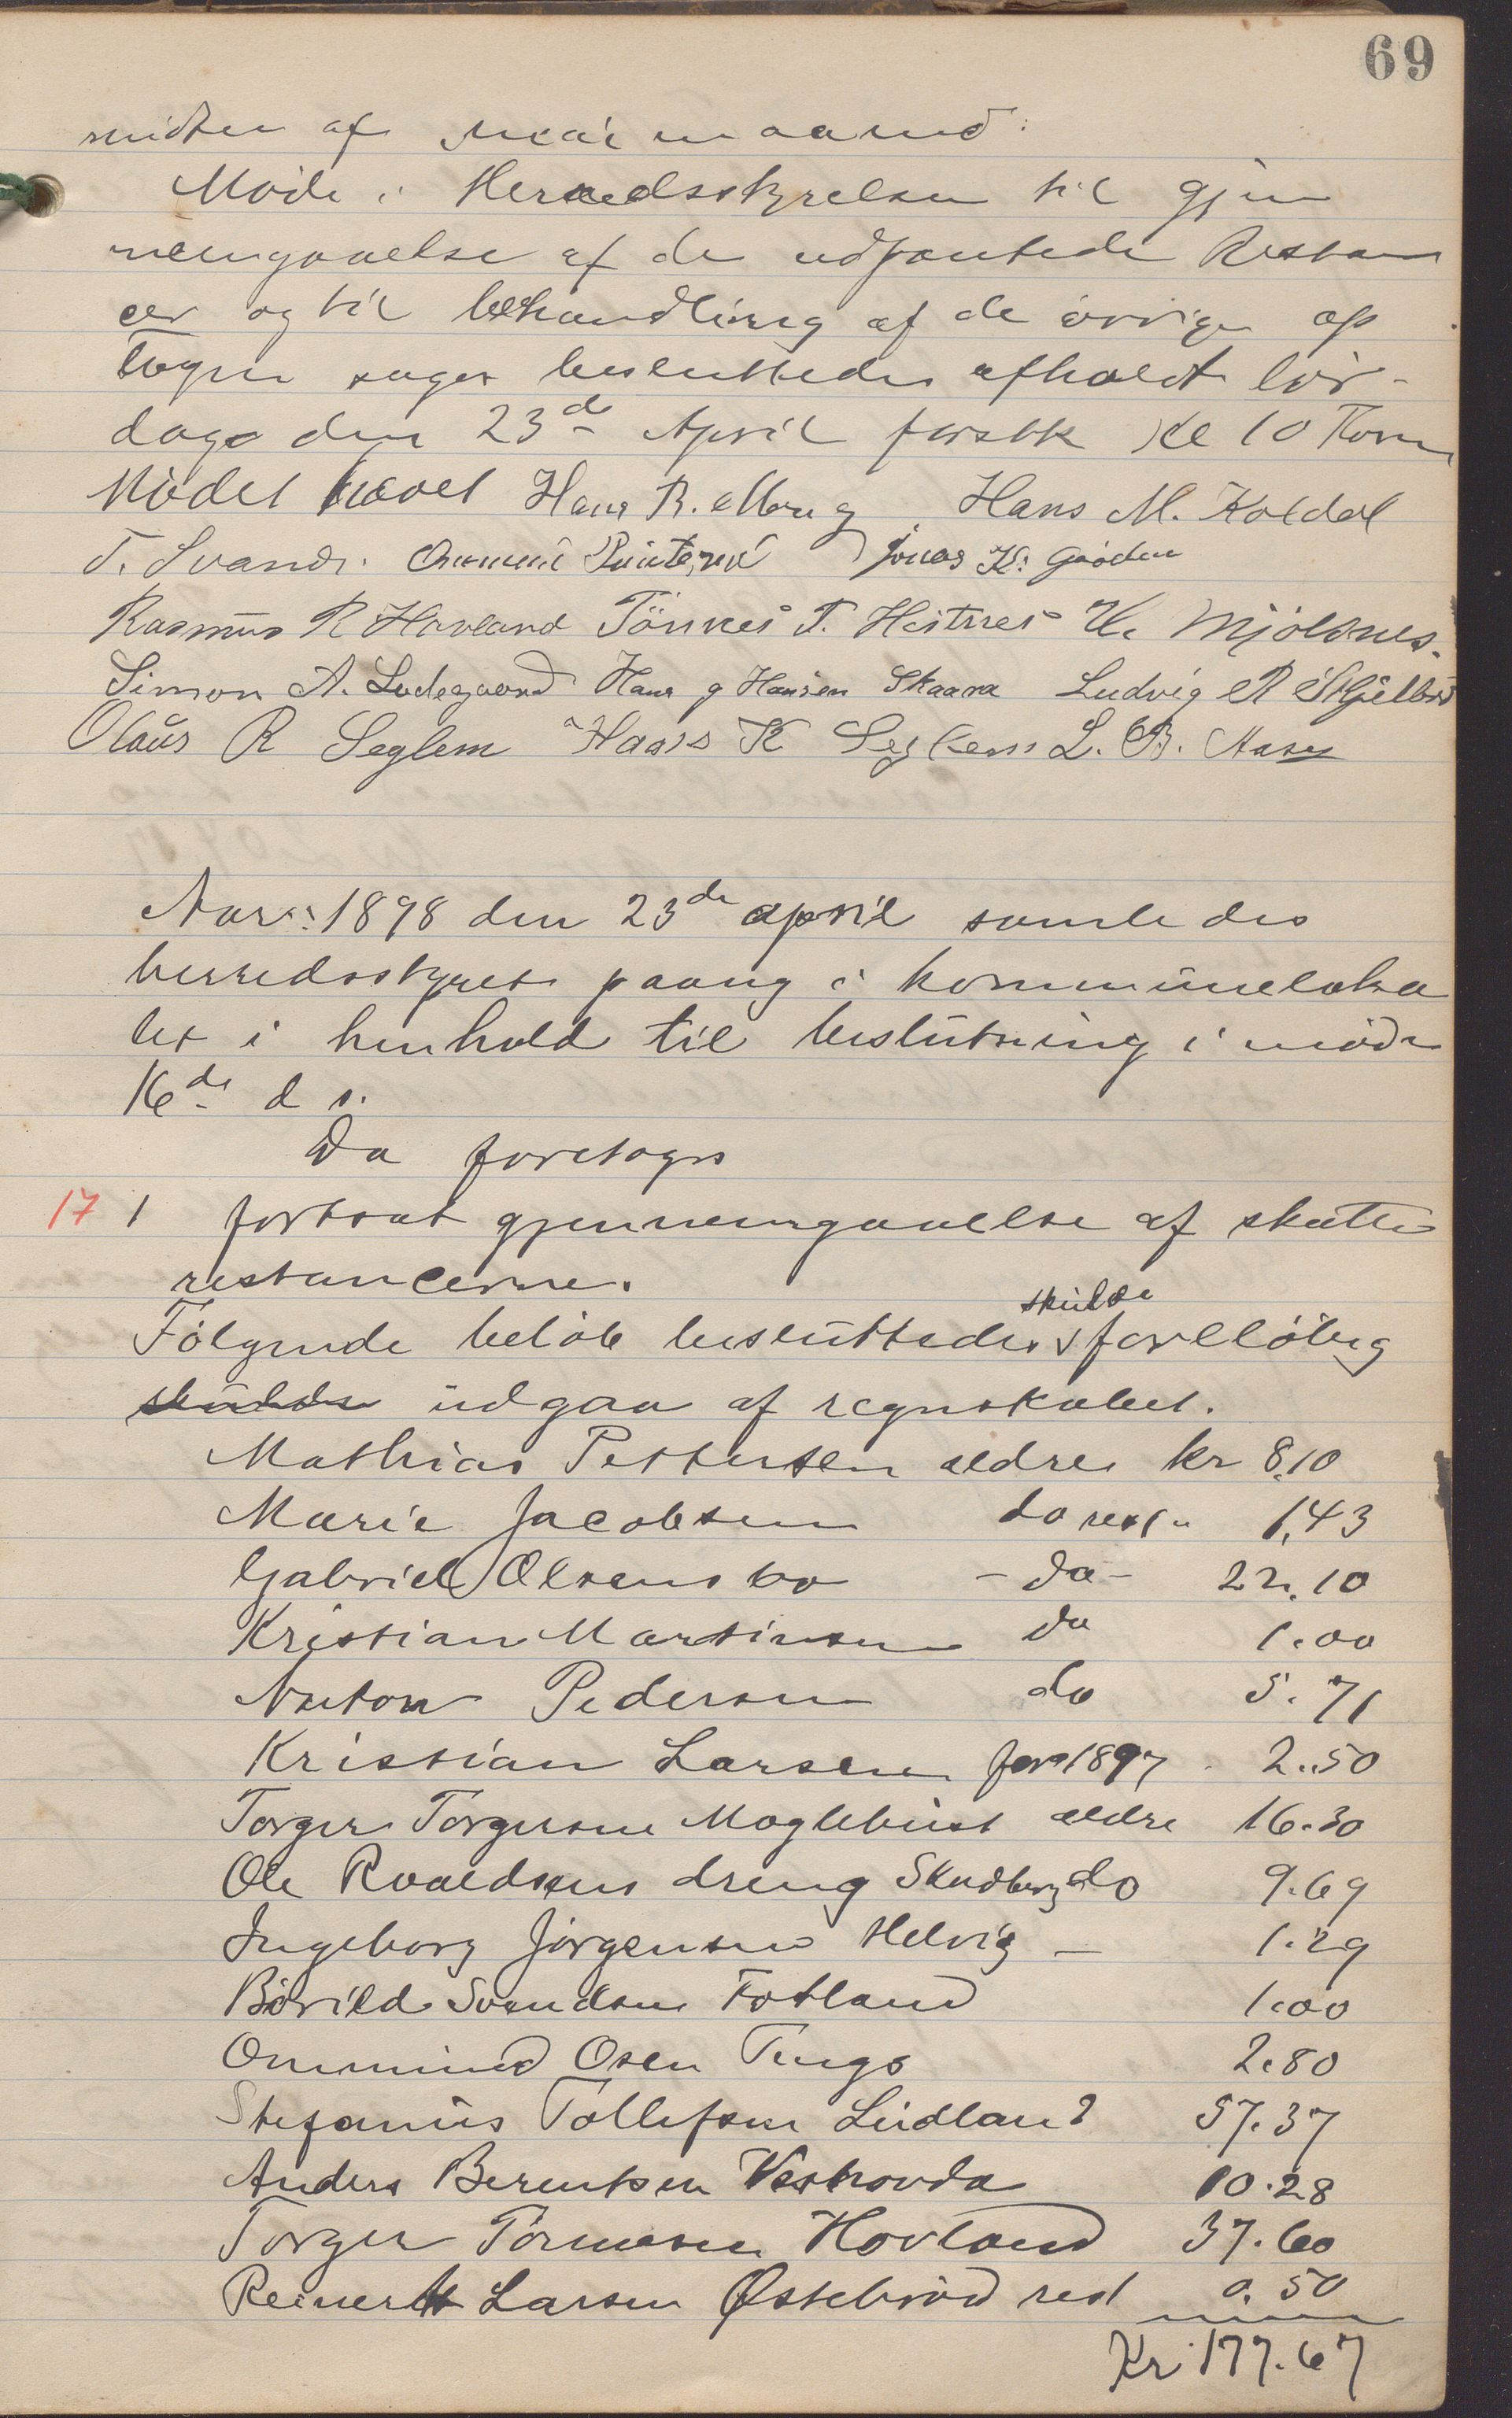 69
midten af mai maaned.
Møde i Herredsstyrelsen til gjen
nemgaaelse af de udpantede Restan
cer og til behandling af de øvrige op
tagne sager besluttedes afholdt lør-
dage den 23de April førstk Kl 10 Form
Mødet hævet Hans R. Aborg Hans M. Koldal
T. Svands. Ommund Jonas K. Gjøden
Rasmus R Hovland Tönnes T. Hestnes K. Mjölsnes.
Simon A. Ludegaard Hans G Hansen Skaara Ludvig R Skjelbred
Olaus R Seglem Hans K Seglem L. B. Aase
Aar: 1898 den 23de april samledes
herredsstyret paany i kommuneloka
let i henhold til beslutning i møde
16de d s.
Da foretoges
17 1 fortsat gjennemgaaelse af skatte
restancerne.
skulde
Følgende beløb besluttedes foreløbig
skulde udgaa af regnskabet.
Mathias Pettersen ældre kr 8.10
Marie Jacobsen do rest " 1.43
Gabriel Olsens bo - do - 22.10
Kristian Martinsen do 1.00
Anton Pedersen do 5.71
Kristian Larsen for 1897 - 2.50
Torger Torgersen Maglehust ældre 16.30
Ole Roaldsens dreng Skadberg do 9.69
Ingeborg Jørgensen Helvig — 1.29
Børild Svendsen Fotland 1.00
Ommund Osen Tengs 2.80
Stefanus Tollefsen Lindland 57.37
Anders Berentsen Vestrovda 10.28
Torger Tormosen Hovland 37.60
Reinert Larsen Østebrød rest 0.50
Kr. 177.67